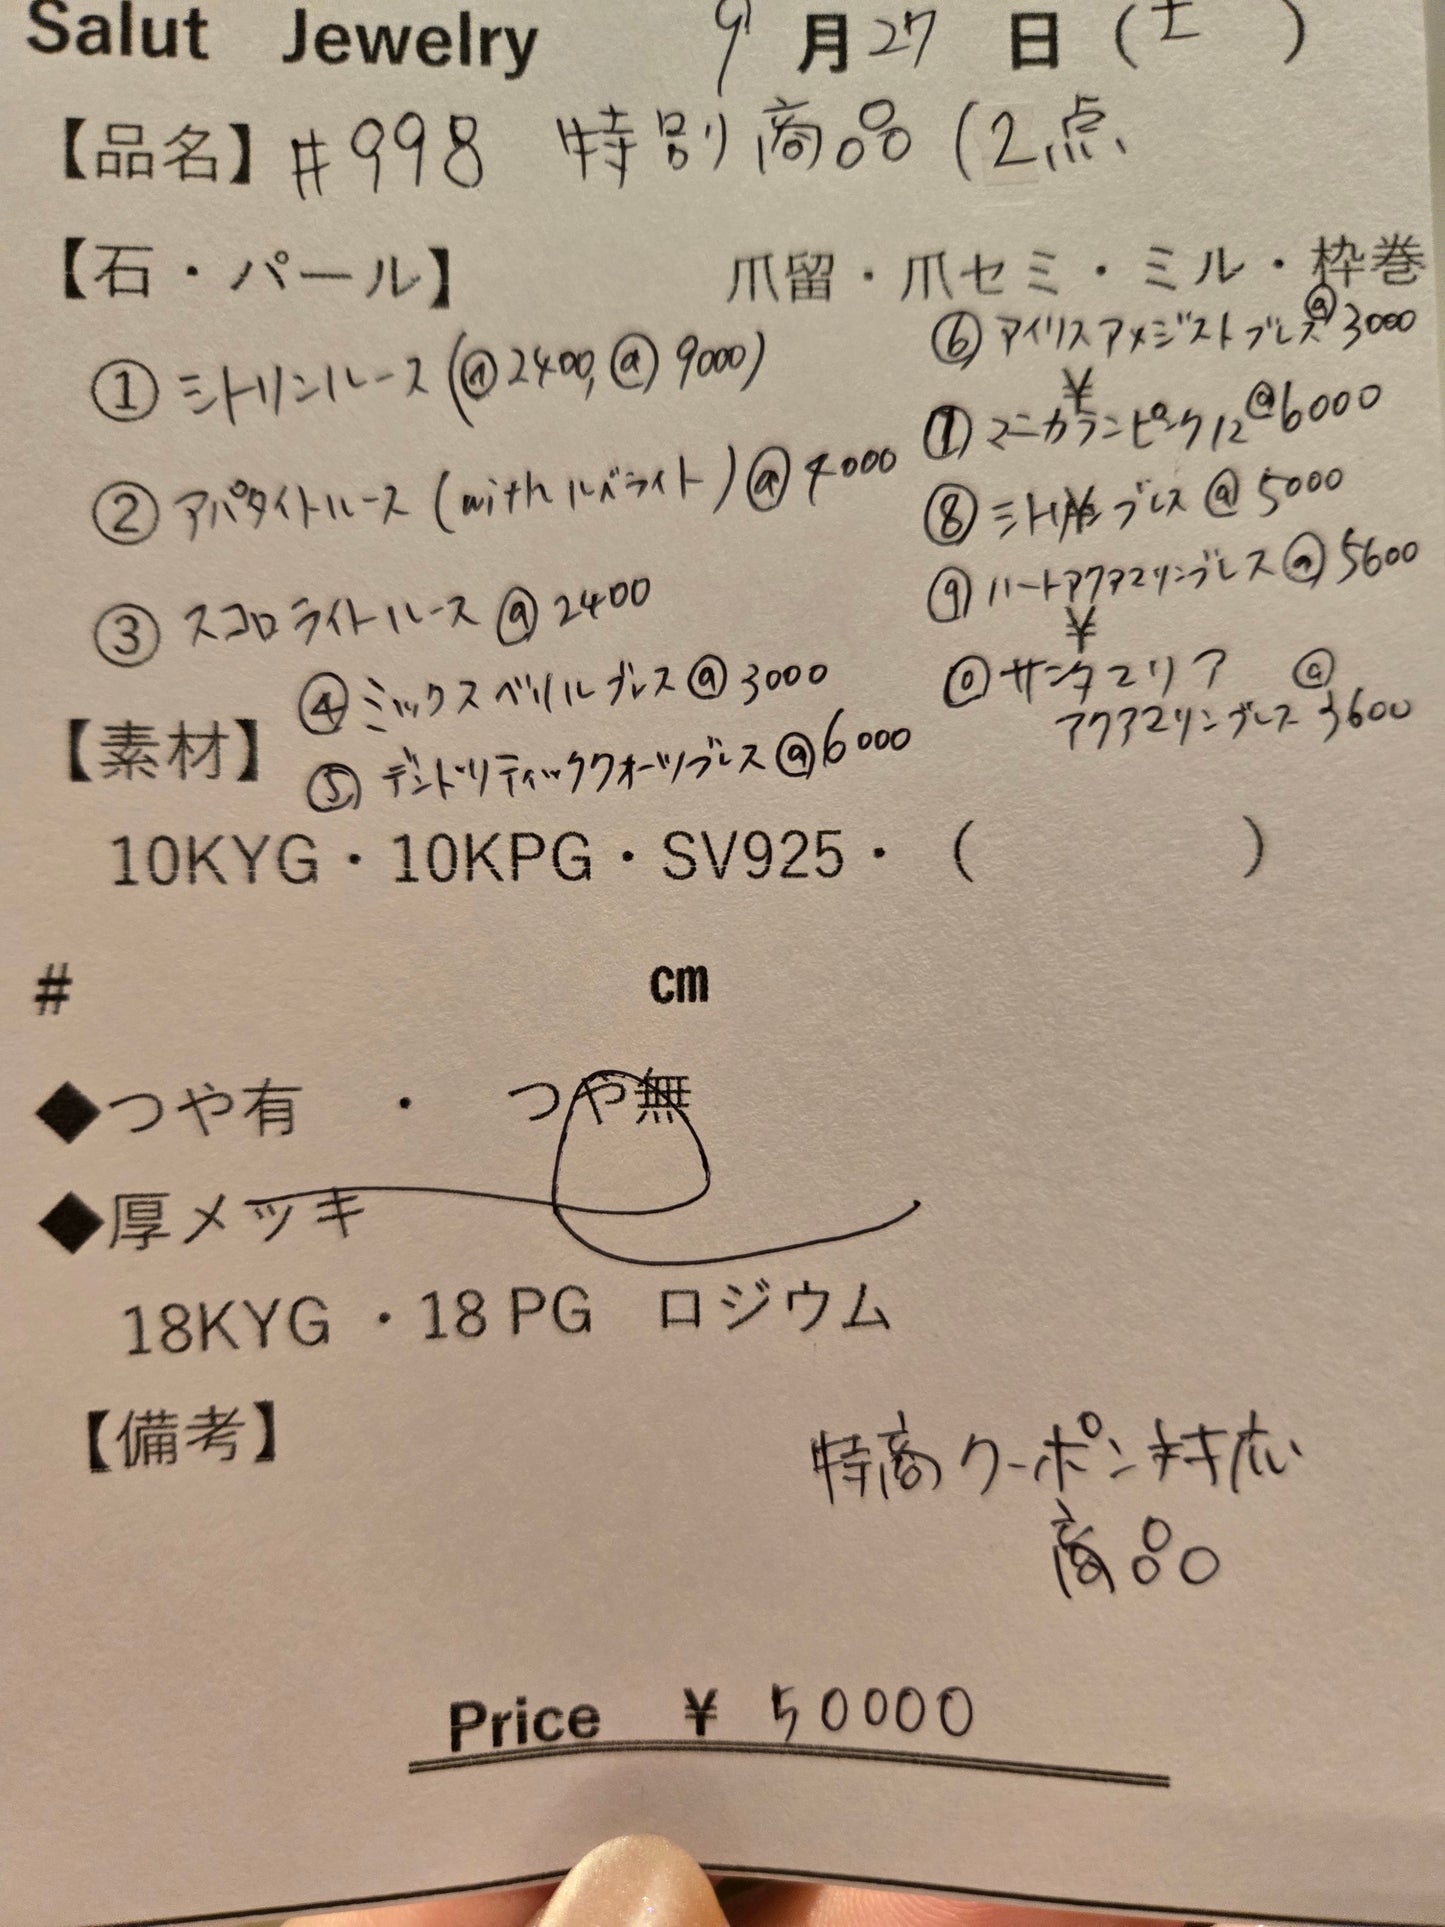 Salut Jewelry 9月27日(土 )
【品名】#998 特別商品(2点
【石・パール】 爪留・爪セミ・ミル・枠巻
① シトリンルース(@2400, @9000)
② アパタイトルース(withルベライト)@4000
③ スコロライトルース @2400
④ ミックスベリルブレス@3000
⑤ デンドリティッククォーツブレス@6000
⑥ アイリスアメジストブレス@3000
¥
⑦ マニカランピンク12@6000
⑧ シトリンブレス@5000
¥
⑨ ハートアクアマリンブレス@5600
¥
⓪サンタマリア @
アクアマリンブレス 3600
【素材】
10KYG・10KPG・SV925・( )
# cm
◆つや有 ・ つや無
◆厚メッキ
18KYG ・18 PG ロジウム
【備考】
特商クーポン対応
商品
Price ¥ 50000